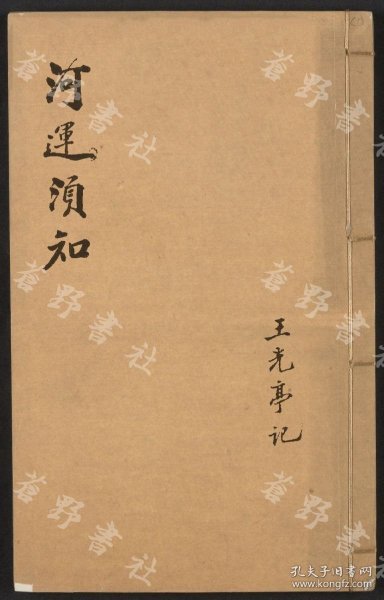 河運須知
王光亭記
蒼野書社
蒼野書社
蒼野書社
蒼野書社
蒼野書社
蒼野書社
孔夫子旧书网
www.kongfz.com